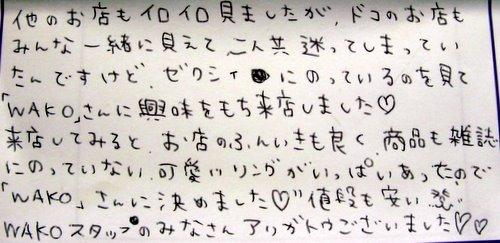 他のお店もイロイロ見ましたが、ドコのお店も
みんな一緒に見えて二人共迷ってしまってい
たんですけど、ゼクシィにのっているのを見て
「WAKO」さんに興味をもち来店しました♡
来店してみると、お店のふんいきも良く、商品も雑誌
にのっていない可愛いリングがいっぱいあったので
「WAKO」さんに決めました♡"値段も安い
WAKOスタッフのみなさんアリガトウございました♡♡